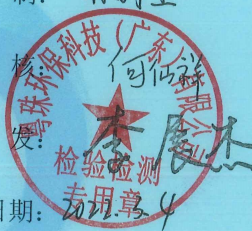 核： 何仙祥
发： 李展杰
日期： 2022.3.4
粤珠环保科技（广东）有限公司
检验检测
专用章